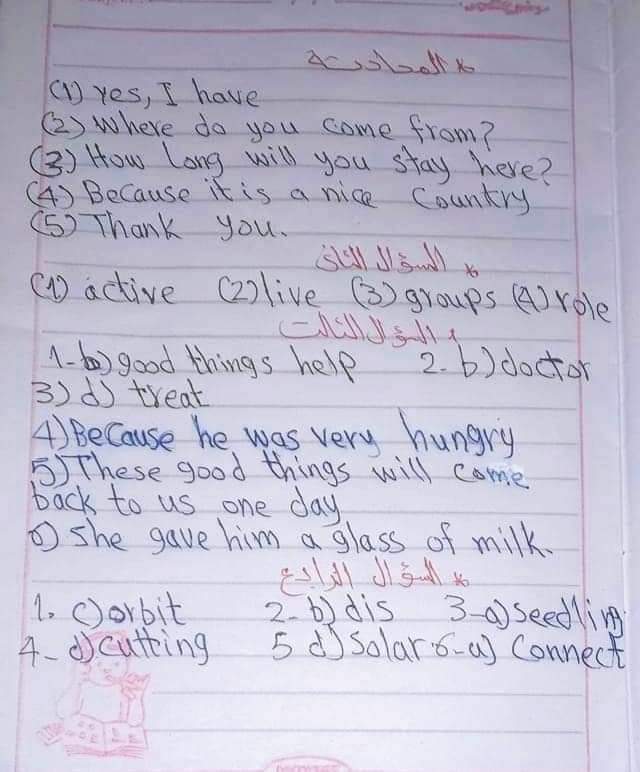 * المحادثة
(1) Yes, I have
(2) Where do you come from?
(3) How Long will you stay here?
(4) Because it is a nice Country
(5) Thank you.
* السؤال الثانى
(1) active (2) live (3) groups (4) role
* السؤال الثالث
1-b) good things help 2-b) doctor
3) d) treat
4) Because he was very hungry
5) These good things will come
back to us one day
6) she gave him a glass of milk.
* السؤال الرابع
1. c) orbit 2-b) dis 3-a) seedling
4-d) cutting 5 d) Solar 6-a) Connect